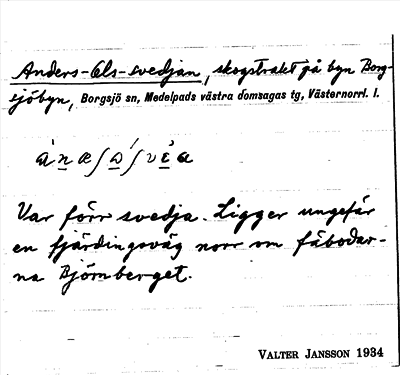 Anders-Ols-svedjan, skogstrakt på byn Borg-
sjöbyn, Borgsjö sn, Medelpads västra domsagas tg, Västernorrl. l.
Var förr svedja. Ligger ungefär
en fjärdingsväg norr om fäbodar-
na Björnberget.
VALTER JANSSON 1934